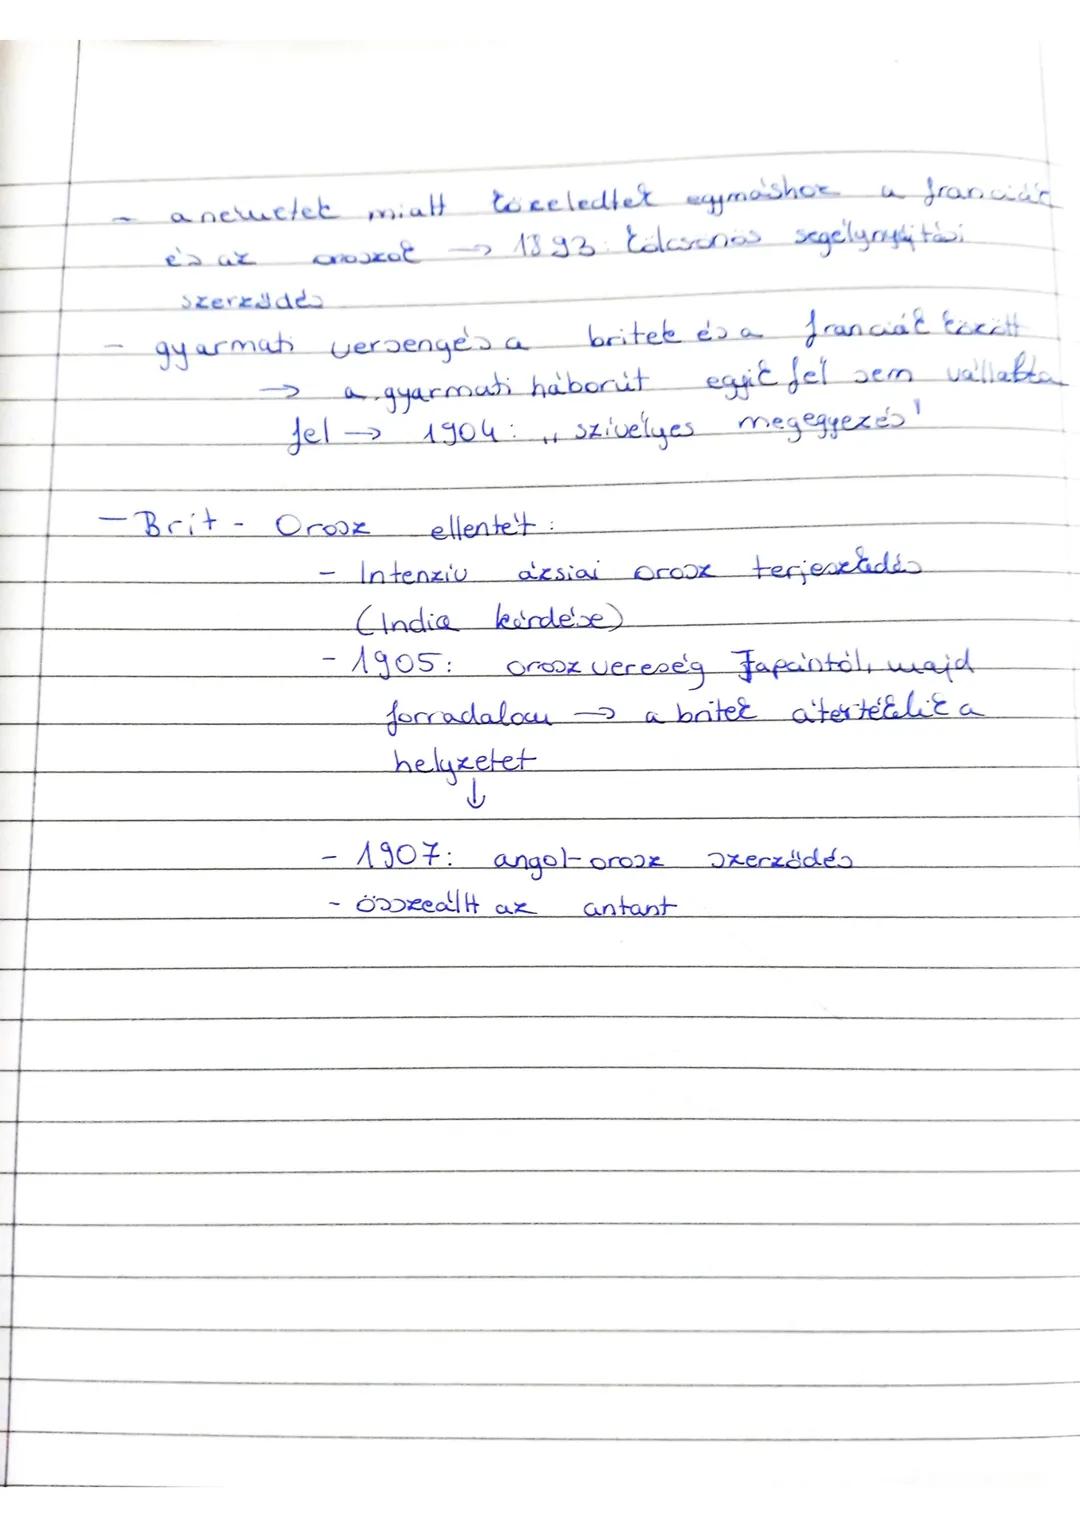 - a németek miatt közeledtek egymáshoz a franciák
és az oroszok -> 1893: kölcsönös segélynyújtási
szerződés
- gyarmati versengés a britek és a franciák között
-> a gyarmati háborút egyik fél sem vállalta
fel -> 1904: „szívélyes megegyezés"
- Brit - Orosz ellentét:
- Intenzív ázsiai orosz terjeszkedés
(India kérdése)
- 1905: orosz vereség Japántól, majd
forradalom -> a britek átértékelik a
helyzetet
↓
- 1907: angol-orosz szerződés
- összeállt az antant